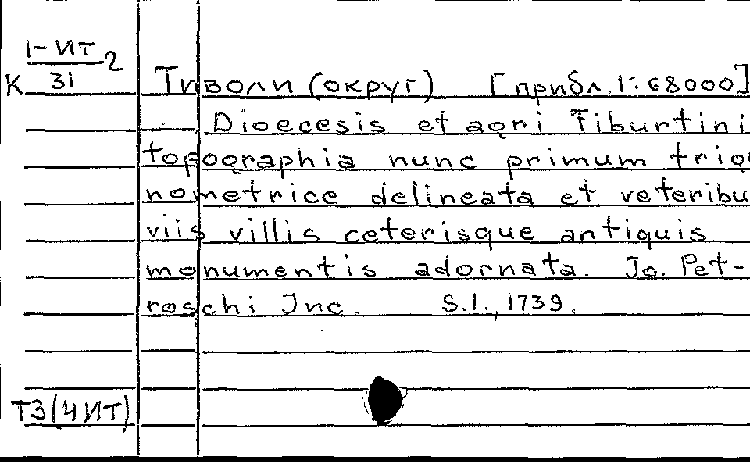 1-ИТ 2
К 31
Тиволи (округ) [прибл. 1:68000]
Dioecesis et agri Tiburtini
topographia nunc primum trigo
nometrice delineata et veteribu
viis villis ceterisque antiquis
monumentis adornata. Jo. Pet-
roschi Inc. S.l., 1739.
Т3(4ИТ)